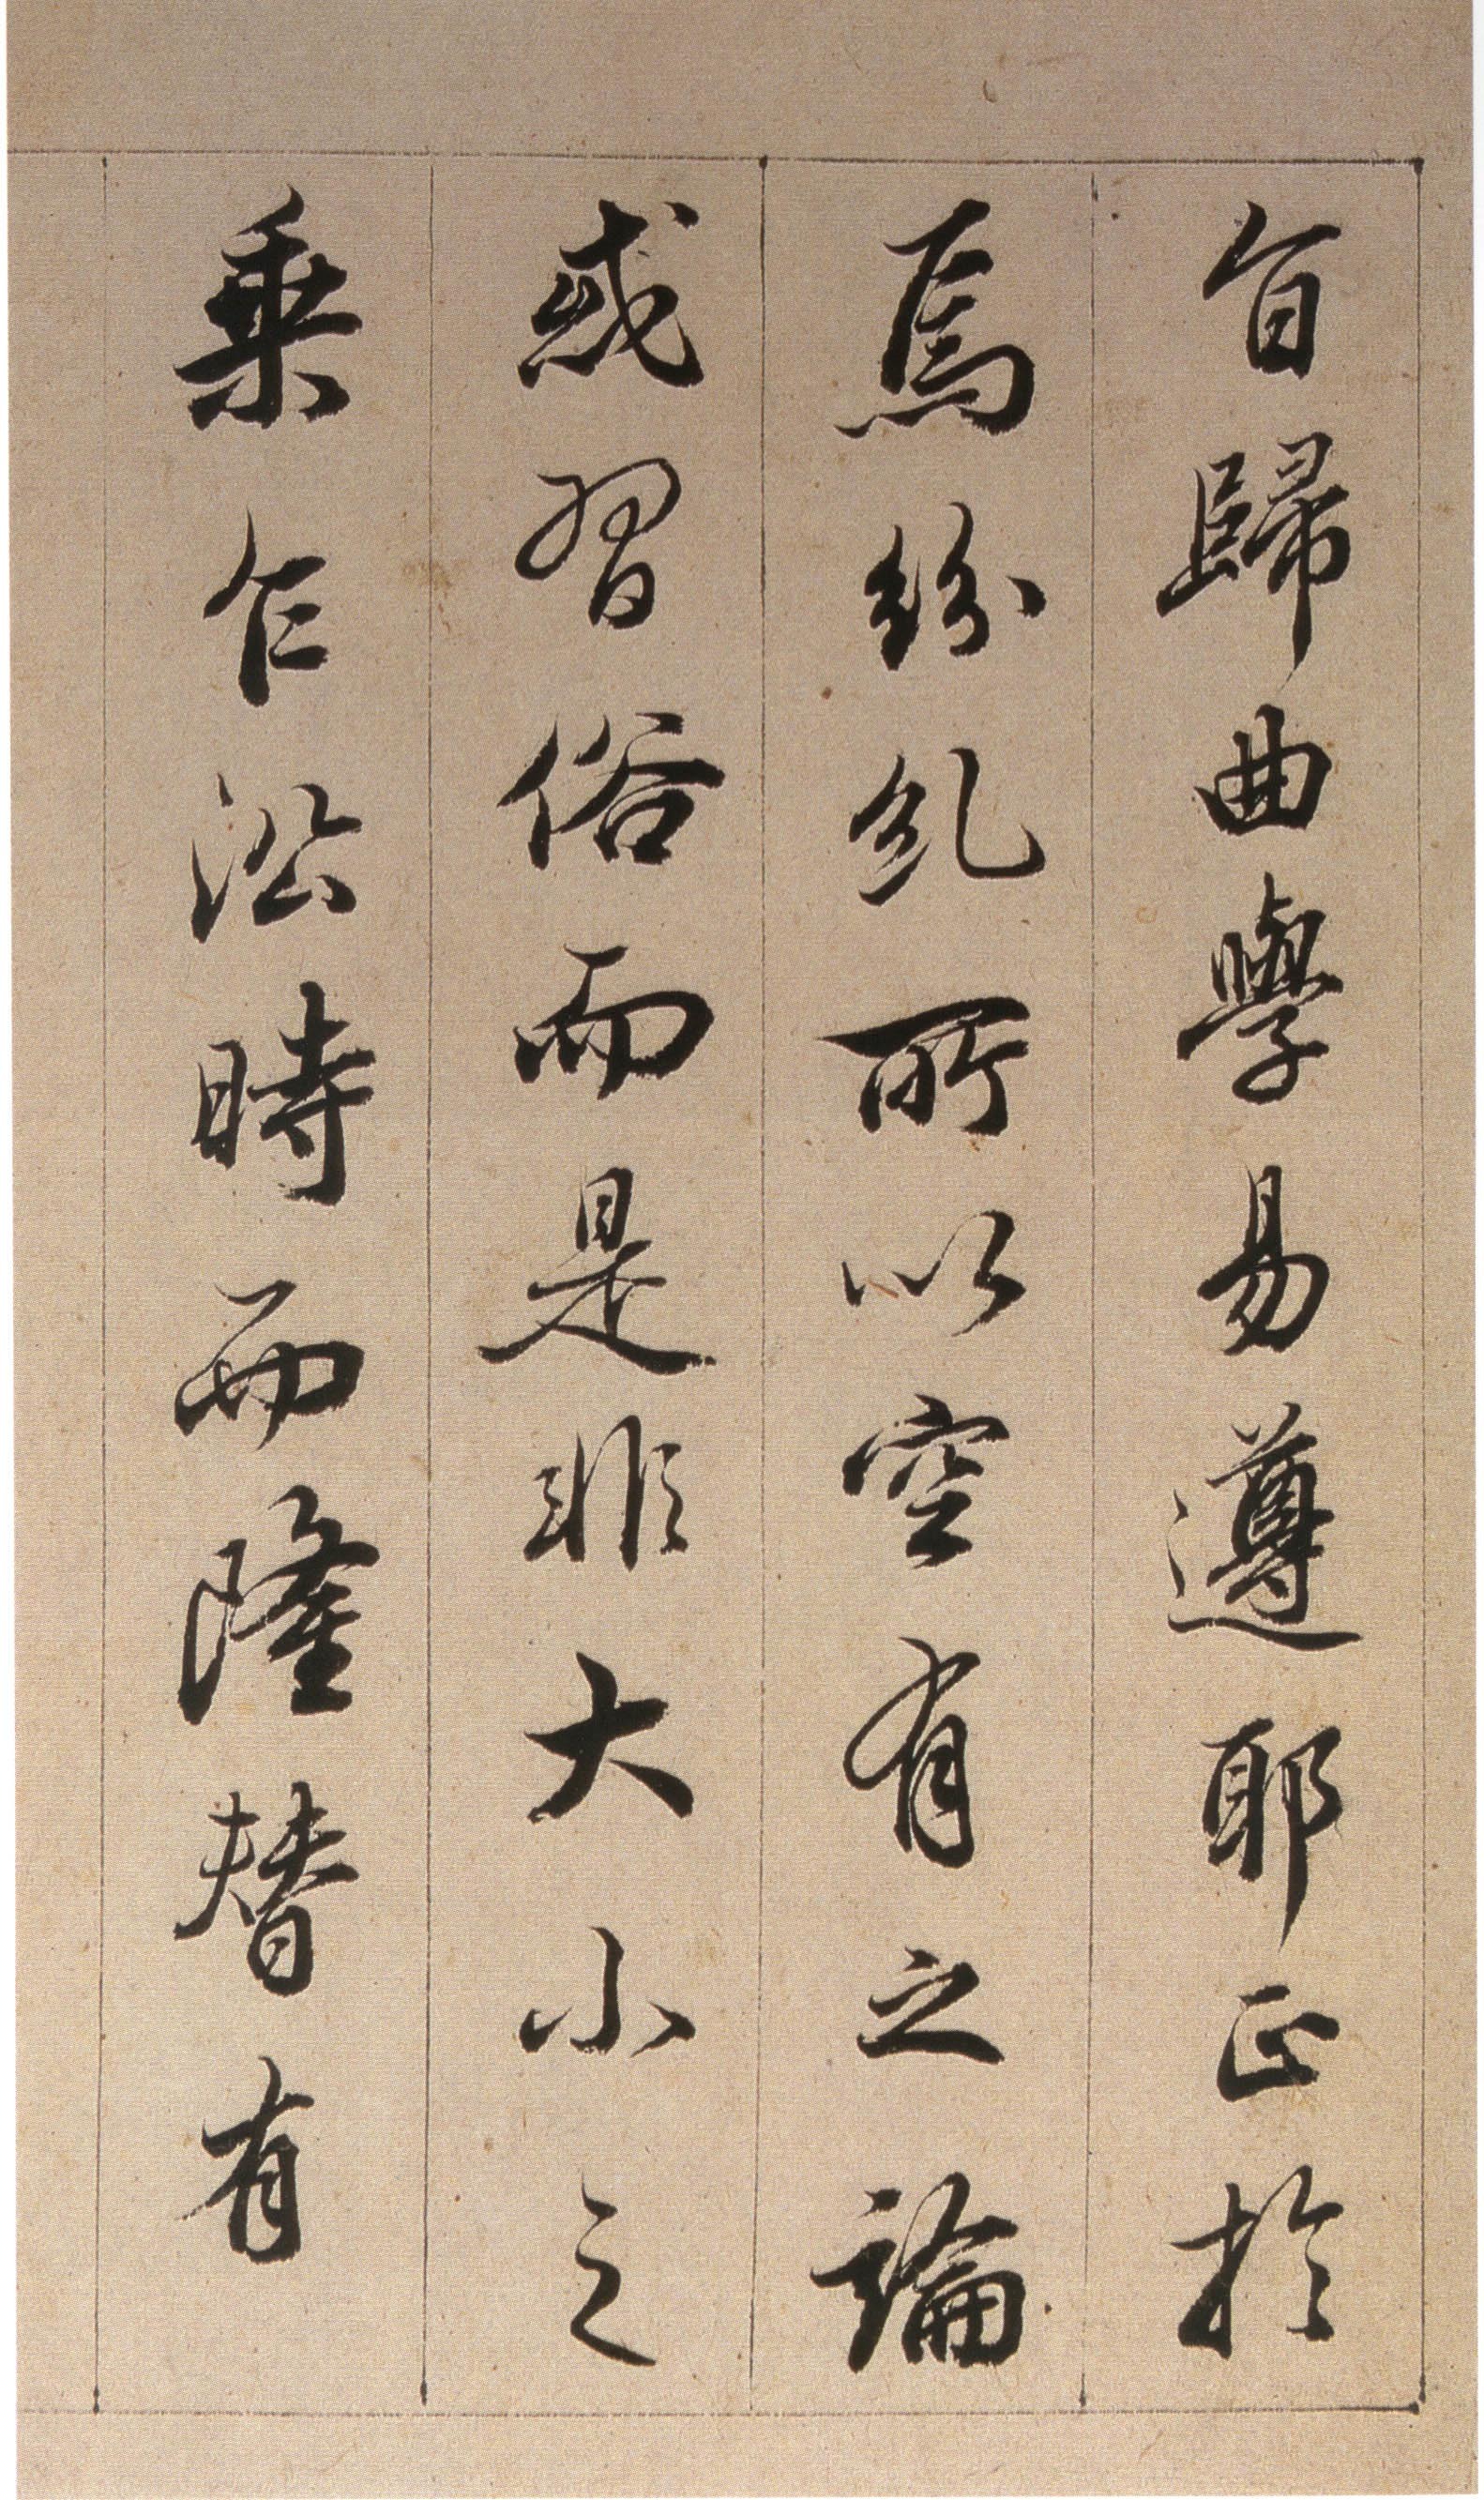 旨歸曲學易遵耶正於
焉紛糺所以空有之論
或習俗而是非大小之
乗乍沿時而隆替有